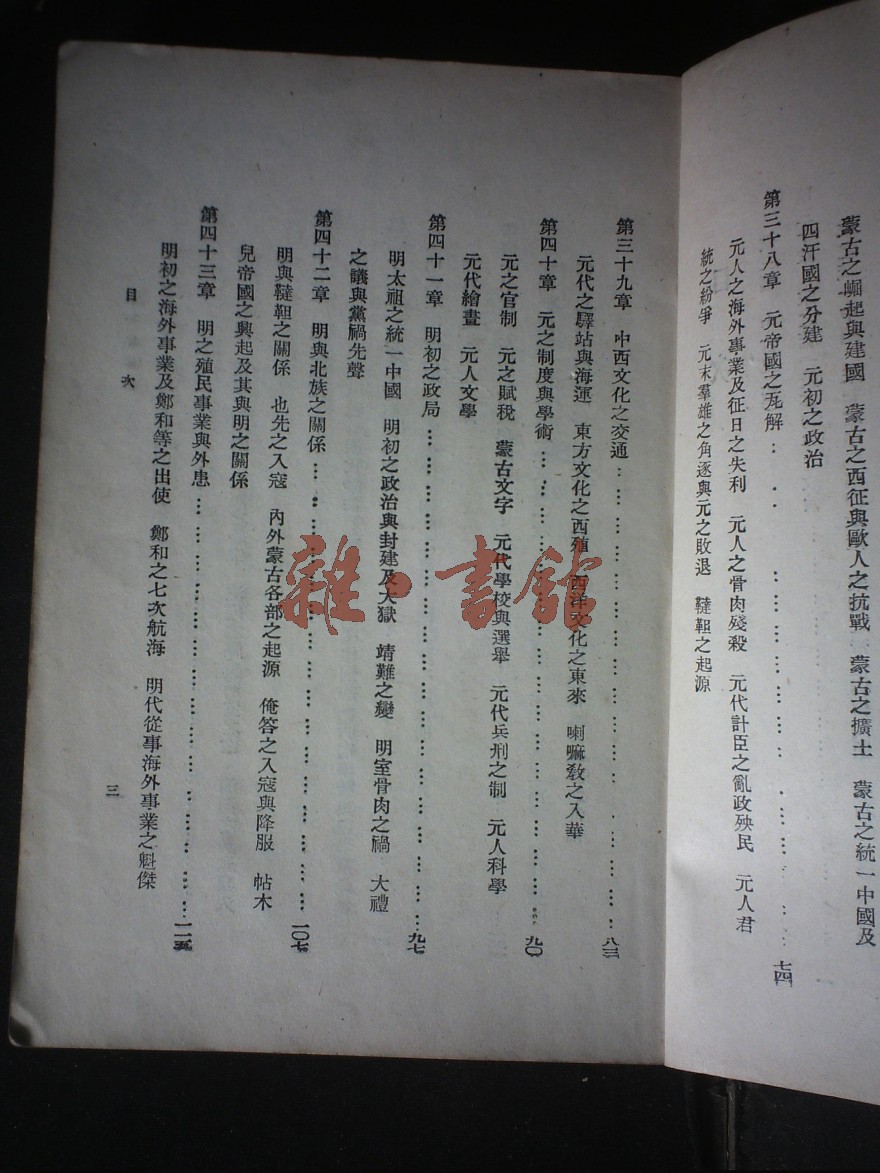 蒙古之崛起與建國　蒙古之西征與歐人之抗戰　蒙古之擴土　蒙古之統一中國及
四汗國之分建　元初之政治
第三十八章　元帝國之瓦解……七四
元人之海外事業及征日之失利　元人之骨肉殘殺　元代計臣之亂政殃民　元人君
統之紛爭　元末羣雄之角逐與元之敗退　韃靼之起源
第三十九章　中西文化之交通……八三
元代之驛站與海運　東方文化之西殖　西洋文化之東來　喇嘛教之入華
第四十章　元之制度與學術……九〇
元之官制　元之賦稅　蒙古文字　元代學校與選舉　元代兵刑之制　元人科學
元代繪畫　元人文學
第四十一章　明初之政局……九七
明太祖之統一中國　明初之政治與封建及大獄　靖難之變　明室骨肉之禍　大禮
之議與黨禍先聲
第四十二章　明與北族之關係……一〇七
明與韃靼之關係　也先之入寇　內外蒙古各部之起源　俺答之入寇與降服　帖木
兒帝國之興起及其與明之關係
第四十三章　明之殖民事業與外患……一一五
明初之海外事業及鄭和等之出使　鄭和之七次航海　明代從事海外事業之魁傑
目次
三
雜·書館